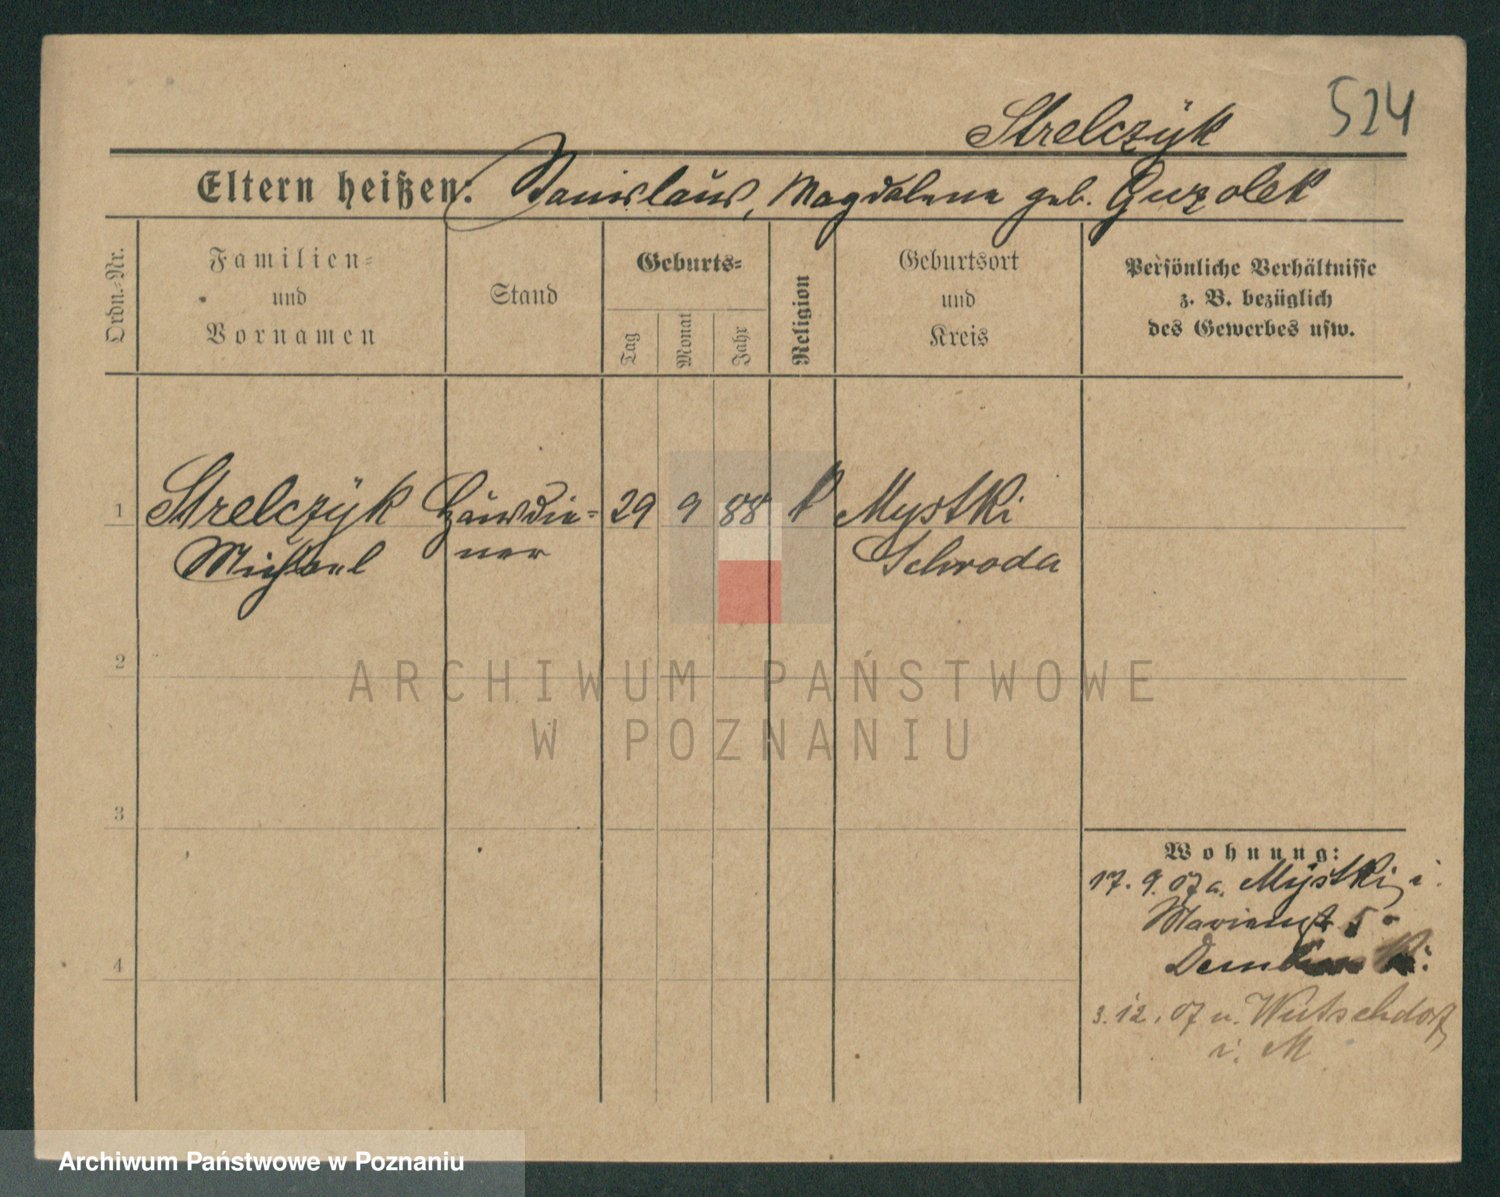 524
Strelczÿk
Eltern heißen: Stanislaus, Magdalena geb. Guzolek
Ordn.-Nr.
Familien-
und
Vornamen
Stand
Geburts-
Tag
Monat
Jahr
Religion
Geburtsort
und
Kreis
Persönliche Verhältnisse
z. B. bezüglich
des Gewerbes usw.
1 Strelczÿk Hausdie- 29 9 88 k Mystki
Michael ner Schroda
2
3
4
Wohnung:
17. 9. 07 a. Mÿstki, i.
5
3. 12. 07 n.
i. M
ARCHIWUM PAŃSTWOWE
W POZNANIU
Archiwum Państwowe w Poznaniu